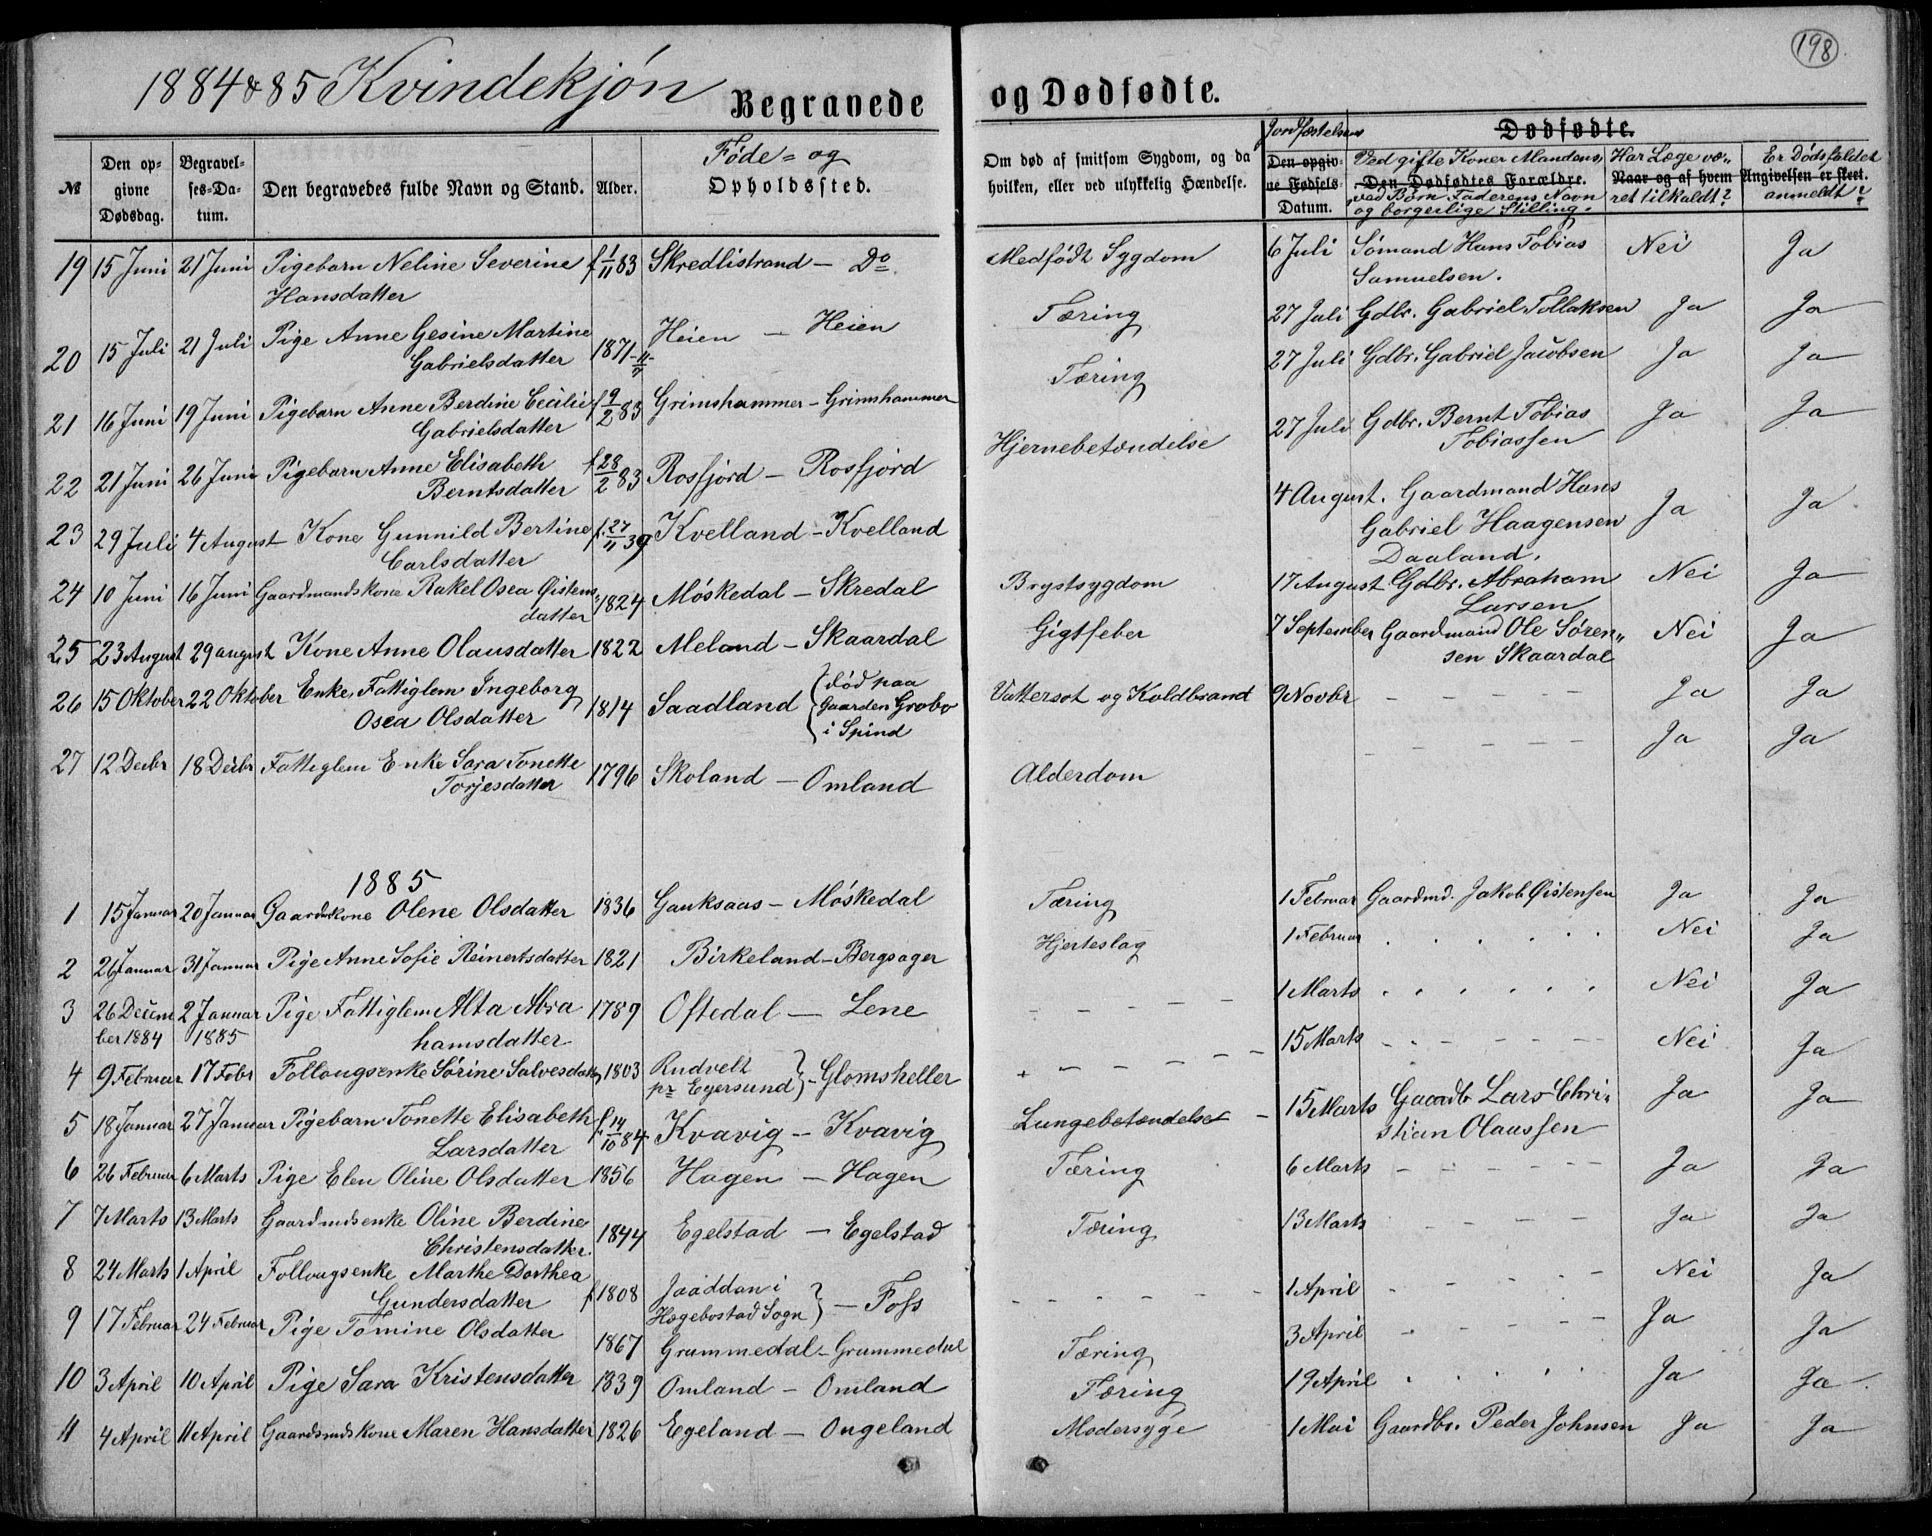 198
1884 & 85 Kvindekjøn Begravede og Dødfødte.
№
Den opgivne Dødsdag.
Begravelses-Datum.
Den begravedes fulde Navn og Stand.
Alder.
Føde- og Opholdssted.
Om død af smitsom Sygdom, og da hvilken, eller ved ulykkelig Hændelse.
Jordfæstelsens
Den opgivne Fødsels-Datum.
Dødfødte.
Ved gifte Koner Mandens,
Den Dødfødtes Forældre.
ved Børn Faderens Navn og borgerlige Stilling.
Har Læge væ-
Naar og af hvem
ret tilkaldt?
Er Dødsfaldet
Angivelsen er skeet.
anmeldt?
19 15 Juni 21 Juni Pigebarn Neline Severine f 1/11 83 Skredlistrand — Do Medfødt Sygdom 6 Juli Sømand Hans Tobias Nei Ja
Hansdatter Samuelsen.
20 15 Juli 21 Juli Pige Anne Gesine Martine 1871 Heien — Heien Tæring 27 Juli Gdbr. Gabriel Tollaksen Ja Ja
Gabrielsdatter
21 16 Juni 19 Juni Pigebarn Anne Berdine Cecilie f 9/2 83 Grimshammer — Grimshammer Tæring 27 Juli Gdbr. Gabriel Jacobsen Ja Ja
Gabrielsdatter
22 21 Juni 26 Juni Pigebarn Anne Elisabeth f 28/2 83 Rosfjord — Rosfjord Hjernebetændelse 27 Juli Gdbr. Bernt Tobias Ja Ja
Berntsdatter Tobiassen
23 29 Juli 4 August Kone Gunnild Bertine f. 27/11 39 Kvelland — Kvelland 4 August. Gaardmand Hans Ja Ja
Carlsdatter Gabriel Haagensen
Daaland.
24 10 Juni 16 Juni Gaardmandskone Rakel Osea Østens 1824 Møskedal — Skredal Brystsygdom 17 August Gdbr. Abraham Nei Ja
datter Larsen
25 23 August 29 august Kone Anne Olausdatter 1822 Meland — Skaardal Gigtfeber 7 September Gaardmand Ole Søren- Nei Ja
sen Skaardal
26 15 Oktober 22 Oktober Enke, Fattiglem Ingeborg 1814 Saadland { død paa Vattersot og Koldbrand 9 Novbr — — — — — Ja Ja
Osea Olsdatter Gaarden Grobo
i Spind
27 12 Decbr 18 Decbr Fattiglem Enke Sara Tonette 1796 Skoland — Omland Alderdom — — — — — Ja Ja
Torjesdatter
1885
1 15 Januar 20 Januar Gaardmkone Olene Olsdatter 1836 Gauksaas — Møskedal Tæring 1 Februar Gaardmd. Jakob Østensen Ja Ja
2 26 Januar 31 Januar Pige Anne Sofie Reinertsdatter 1821 Birkeland — Bergsager Hjerteslag 1 Februar . . . . . . Nei Ja
3 26 Decem 2 Januar Pige Fattiglem Alta Abra 1789 Oftedal — Lene — — — — 1 Marts . . . . . . Nei Ja
ber 1884 1885 hamsdatter
4 9 Februar 17 Febr Follaugsenke Sørine Salvesdatter 1803 Rudvelt } — Glomsheller — — — — 15 Marts — — — — — Nei Ja
pr Egersund
5 18 Januar 27 Januar Pigebarn Tonette Elisabeth f. 14/10 84 Kvavig — Kvavig Lungebetændelse — 15 Marts Gaardb Lars Chri- Ja Ja
Larsdatter stian Olaussen
6 26 Februar 6 Marts Pige Elen Oline Olsdatter 1856 Hagen — Hagen Tæring 6 Marts — — — — — Ja Ja
7 7 Marts 13 Marts Gaardmdsenke Oline Berdine 1844 Egelstad — Egelstad Tæring 13 Marts — — — — — Ja Ja
Christensdatter.
8 24 Marts 1 April Follaugsenke Marthe Dorthea f 1808 Jaaddan i } — Foss — — — — — 1 April . — — — — Nei Ja
Gundersdatter Hægebostad Sogn
9 17 Februar 24 Februar Pige Tomine Olsdatter 1867 Grummedal — Grummedal Tæring 3 April — — — — — Ja Ja
10 3 April 10 April Pige Sara Kristensdatter 1839 Omland — Omland Tæring 19 April . . . . . Ja Ja.
11 4 April 11 April Gaardsmdskone Maren Hansdatter 1826 Egeland — Ougeland Modersyge 1 Mai Gaardbr. Peder Johnsen Ja Ja